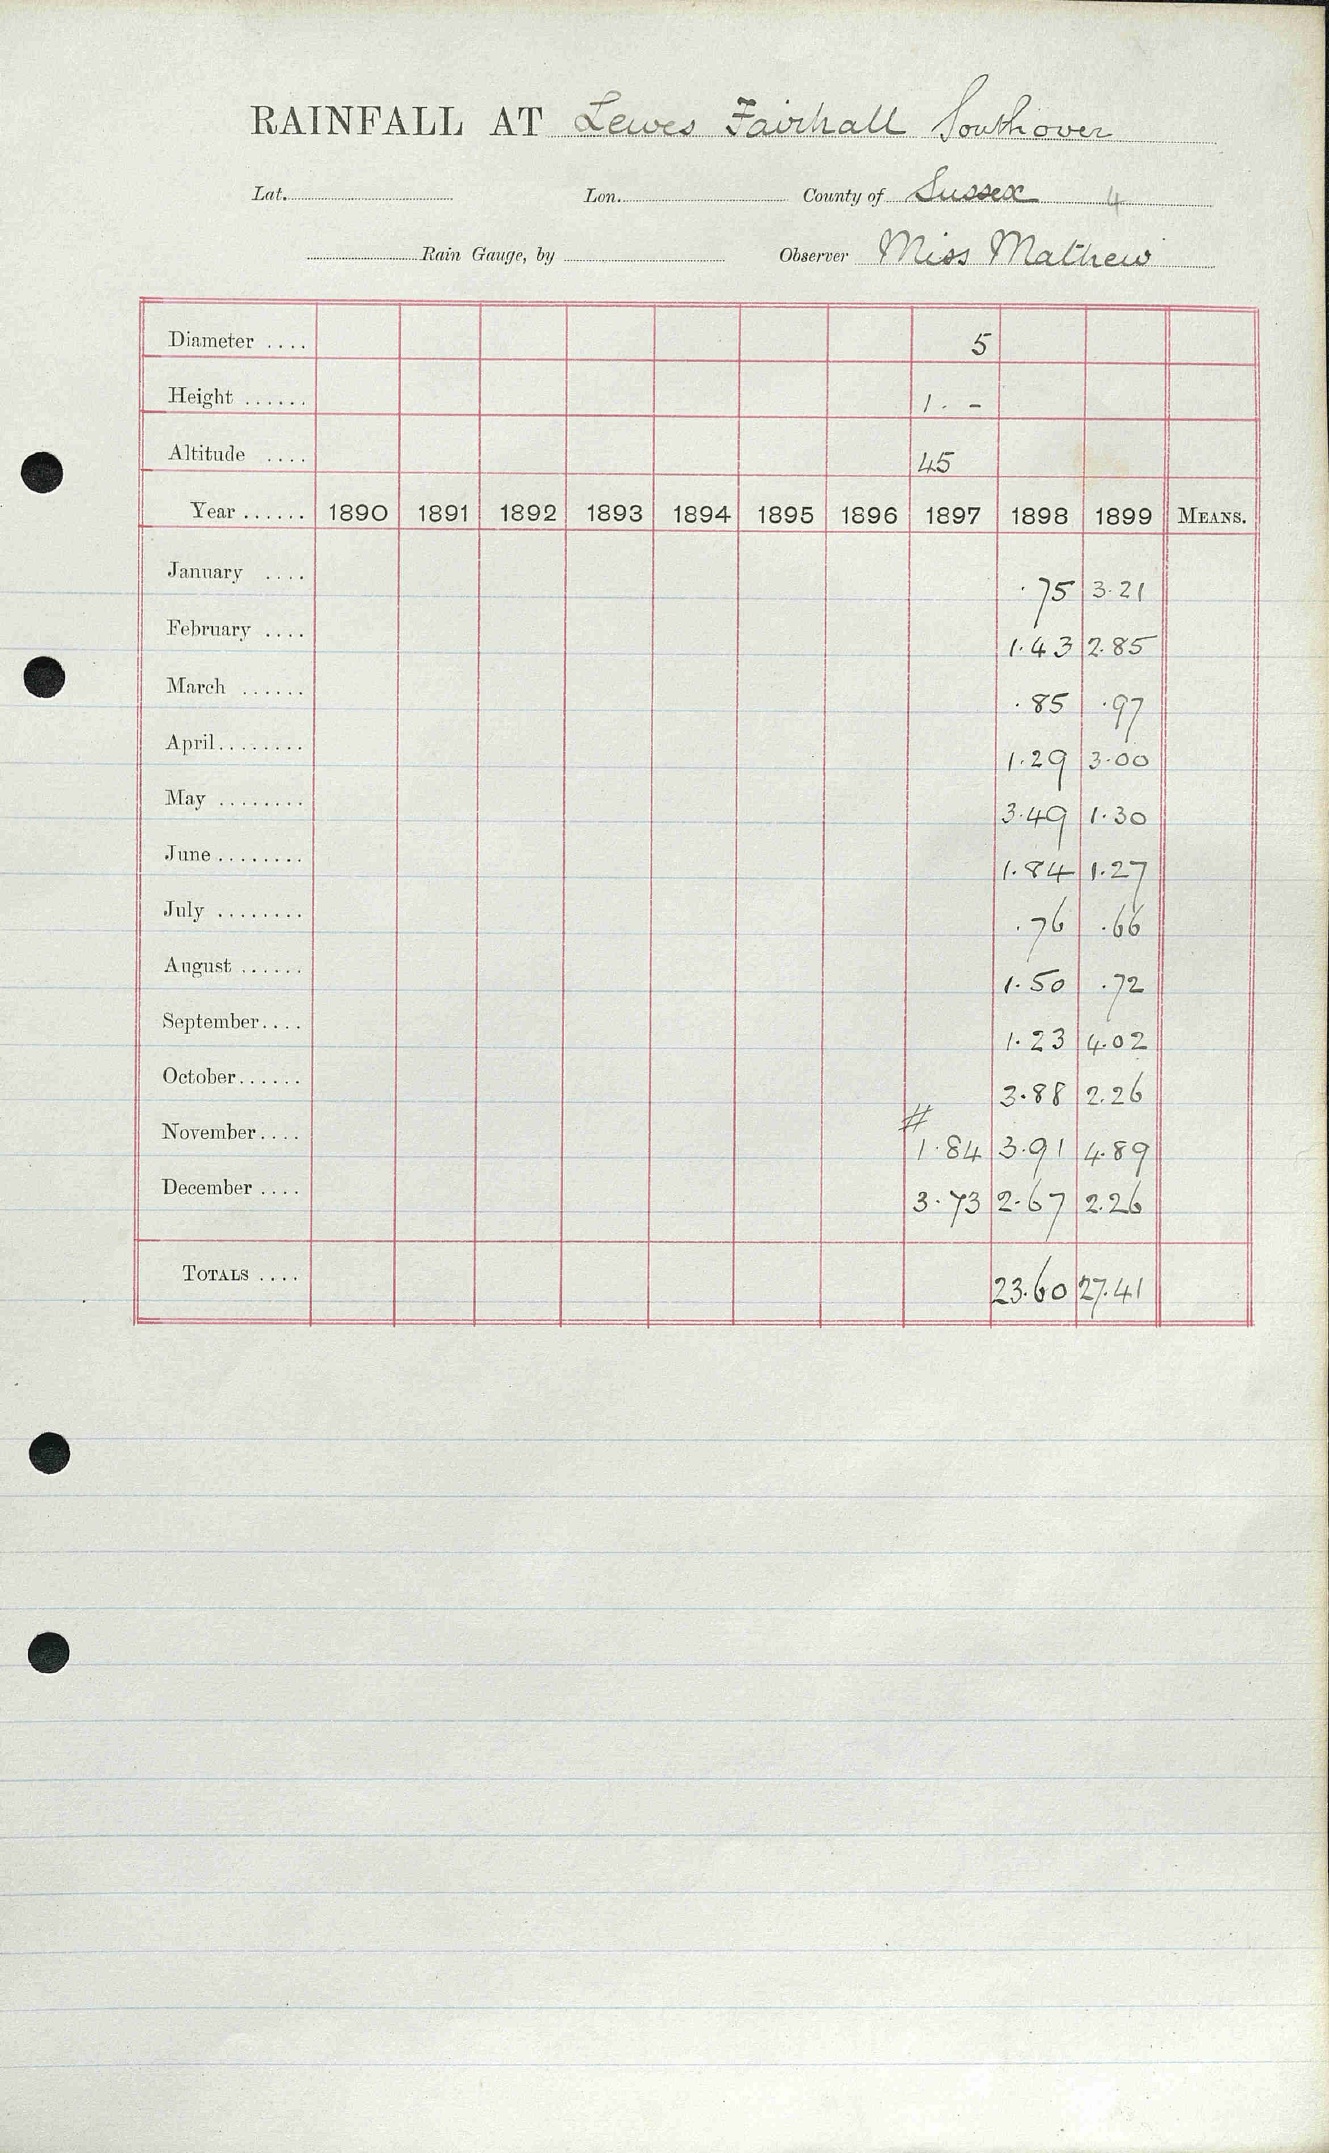 RAINFALL AT Lewes Fairhall Southover
Lat. Lon. County of Sussex 4
Rain Gauge, by Observer Miss Mathew
Diameter .... 5
Height ...... 1. -
Altitude .... 45
Year ...... 1890 1891 1892 1893 1894 1895 1896 1897 1898 1899 MEANS.
January .... .75 3.21
February .... 1.43 2.85
March ...... .85 .97
April........ 1.29 3.00
May ........ 3.49 1.30
June ........ 1.84 1.27
July ........ .76 .66
August ...... 1.50 .72
September.... 1.23 4.02
October...... 3.88 2.26
#
November.... 1.84 3.91 4.89
December .... 3.73 2.67 2.26
TOTALS .... 23.60 27.41